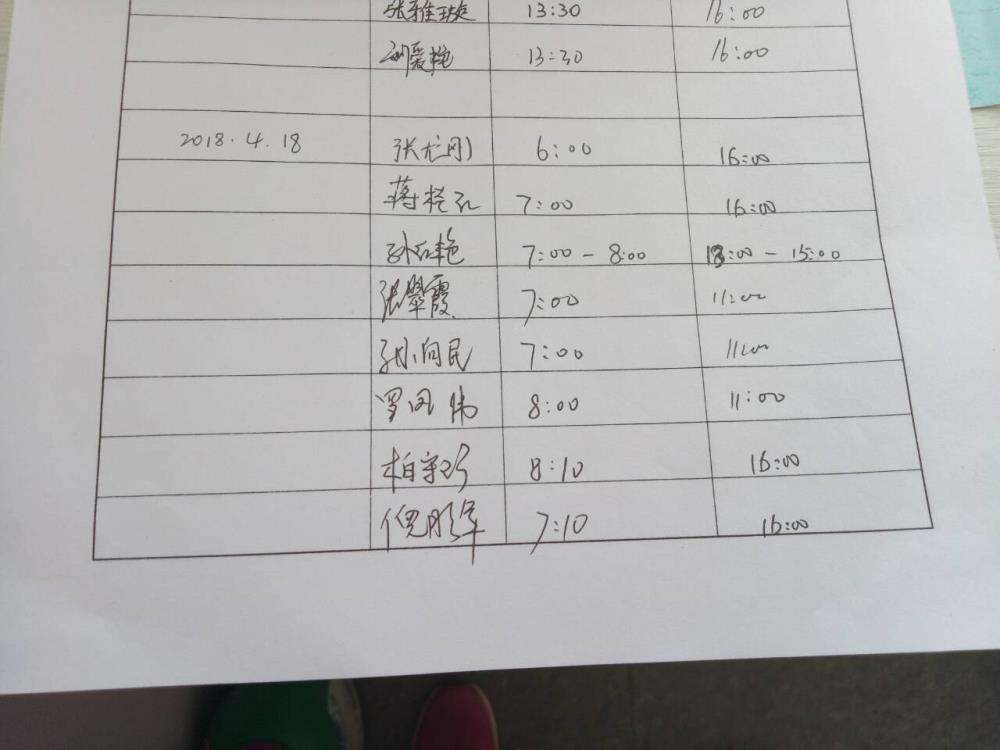 张雅琁 13:30 16:00
刘爱艳 13:30 16:00
2018.4.18 张龙丹 6:00 16:00
蒋桂孔 7:00 16:00
孙艳 7:00 - 8:00 13:00 - 15:00
张翠霞 7:00 11:00
孙向民 7:00 11:00
罗凤伟 8:00 11:00
柏守珍 8:10 16:00
倪彤军 7:10 16:00